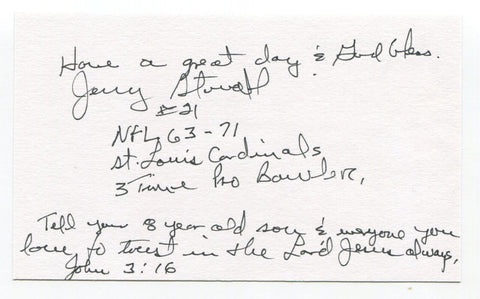 Have a great day & God bless.
Jerry Stovall
#21
NFL 63-71
St. Louis Cardinals
3 Time Pro Bowler,
Tell your 8 year old son & everyone you
love to trust in the Lord Jesus always,
John 3:16